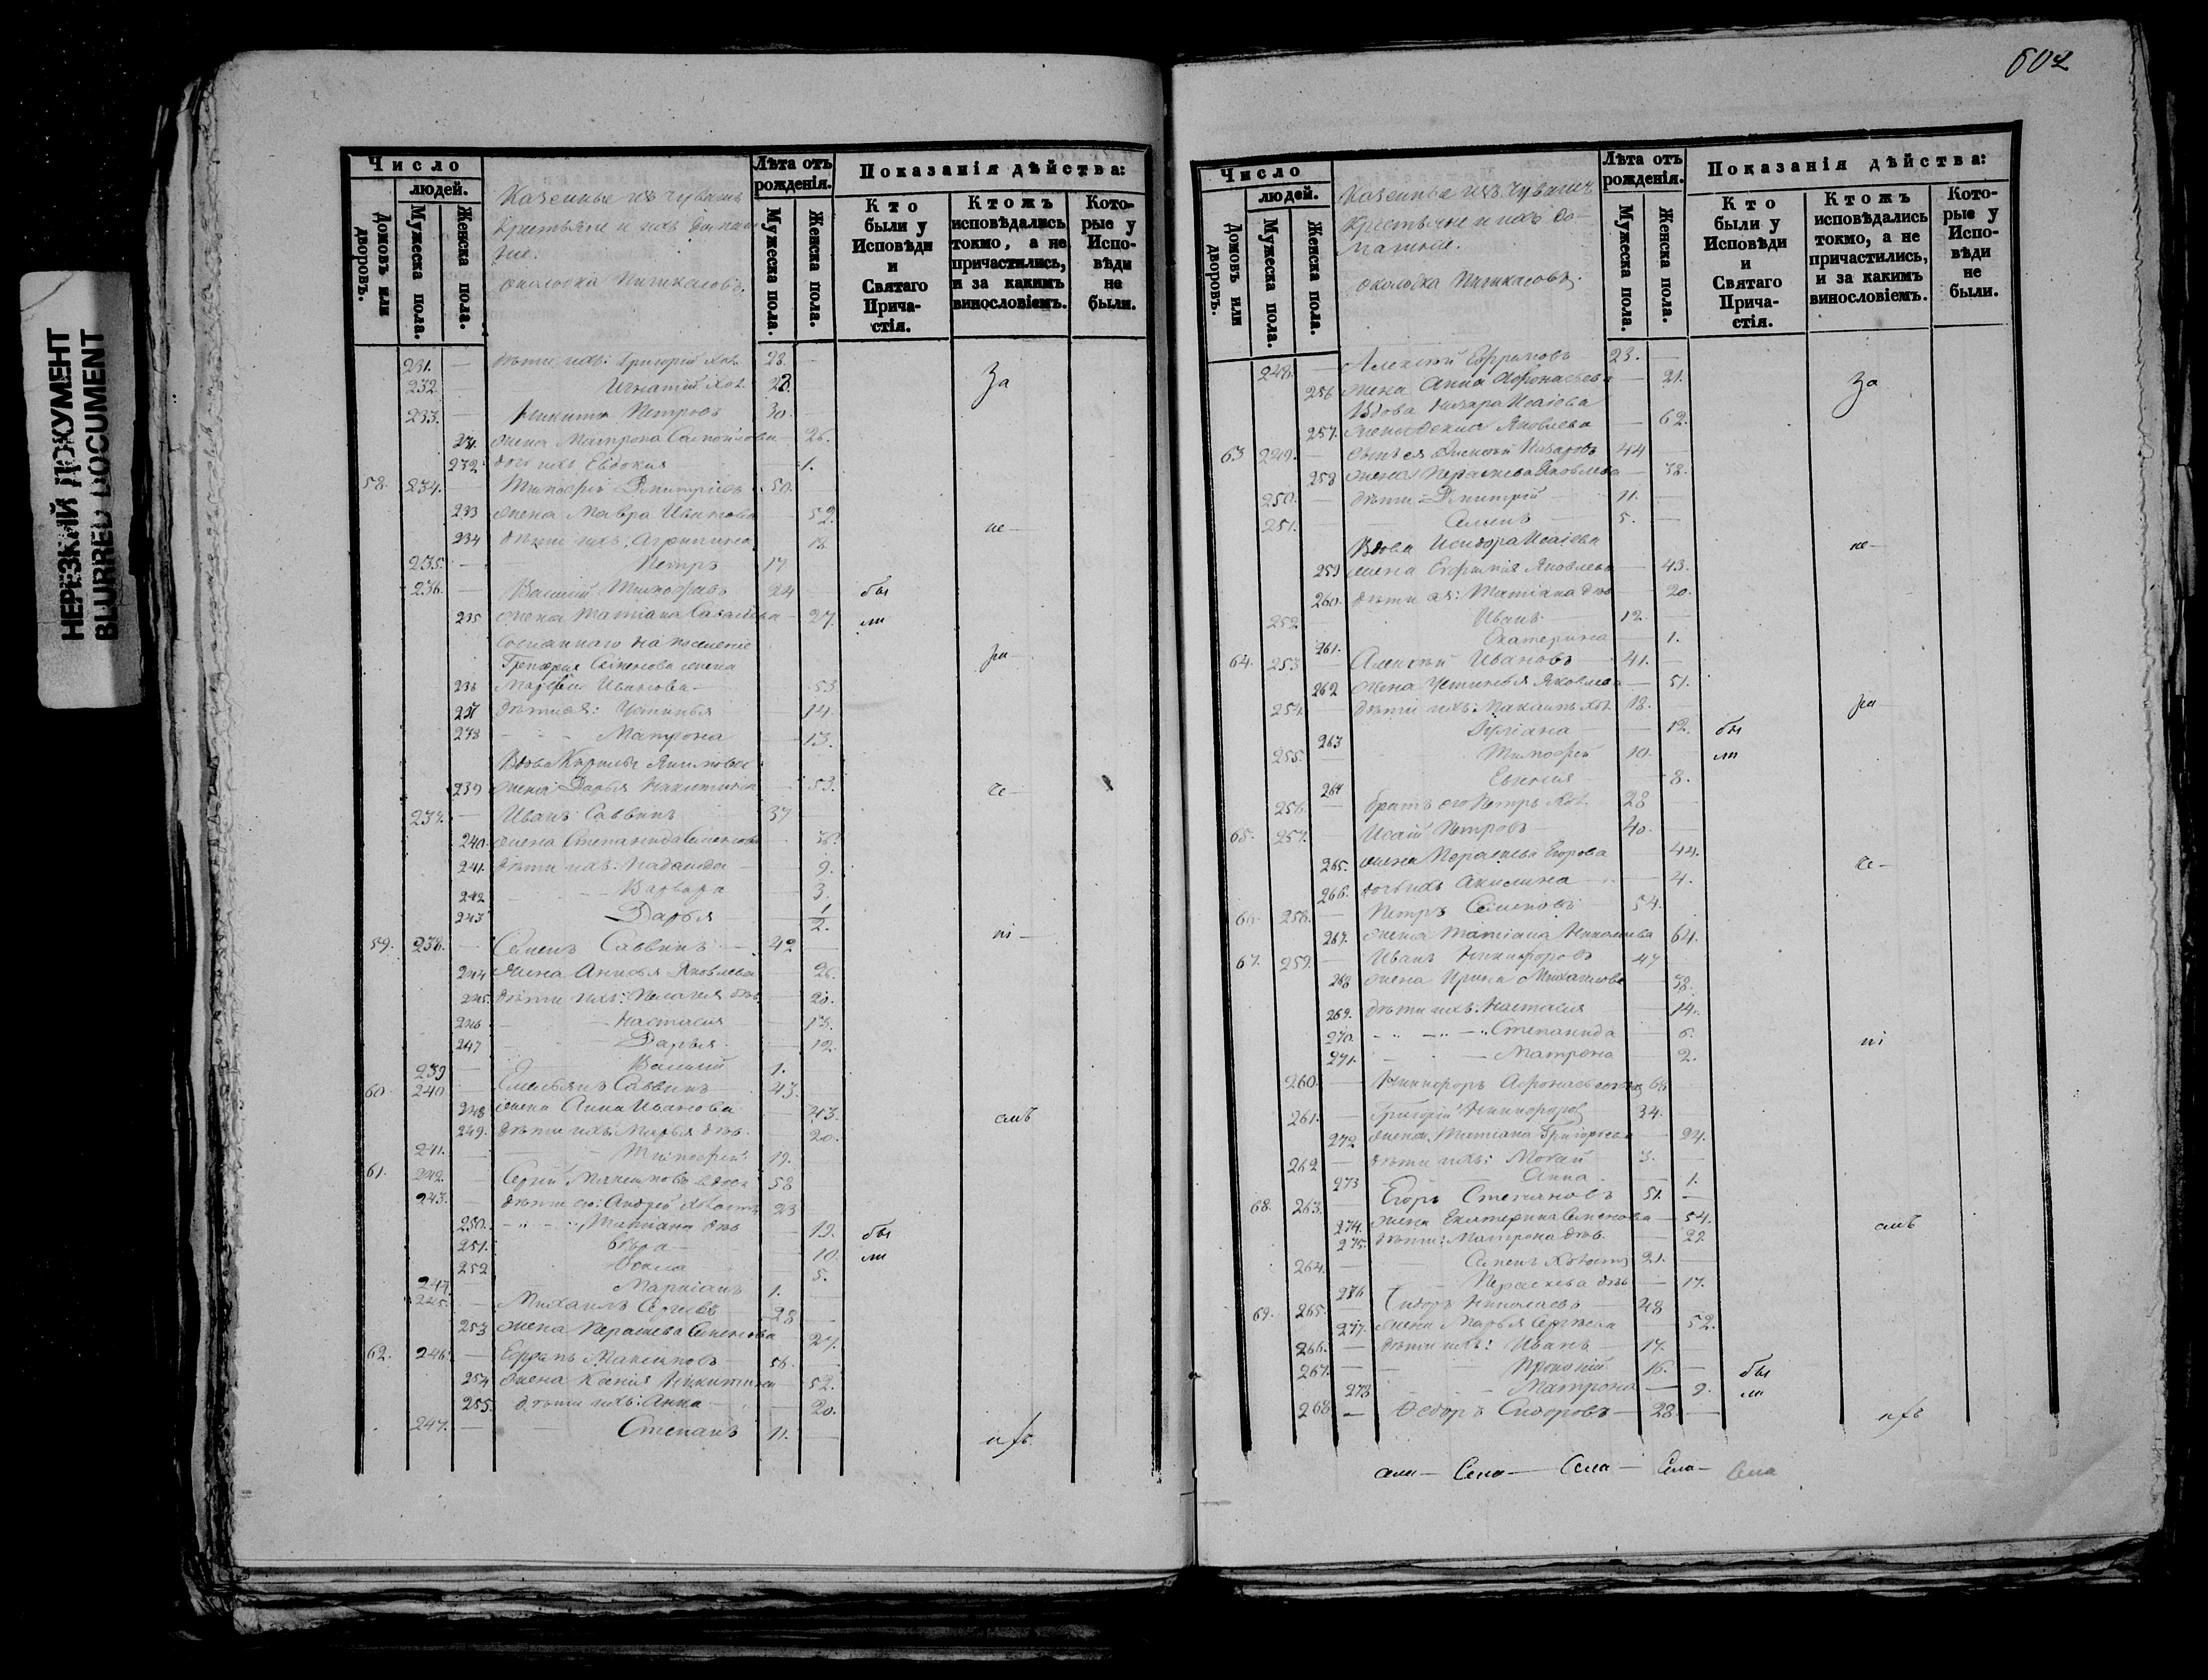 НЕРЕЗКИЙ ДОКУМЕНТ
BLURRED DOCUMENT
Число
людей.
Домовъ или дворовъ.
Мужеска пола.
Женска пола.
Казенные изъ чувашъ
крестьяне и ихъ домаш
ніе.
околодка
Лѣта отъ рожденія.
Мужеска пола.
Женска пола.
Показанія дѣйства:
Кто были у Исповѣди и Святаго Прича-стія.
Ктожъ исповѣдались токмо, а не причастились, и за какимъ винословіемъ.
Кото-рые у Испо-вѣди не были.
231. — дѣти ихъ: Григорій хол. 28. —
232. Игнатій хол.
За
233. — Никита Петровъ 30. —
231. жена Матрона Самойлова — 26.
232. дочь ихъ Евдокия — 1.
58. 234. — Тимофей Дмитріевъ 50. —
233 жена Мавра Иванова — 52.
не —
234 дѣти ихъ: Агрипина 18
235. — Петръ 17
236. — Василій Тимофеевъ 24 — бы
235 жена Татіана Савельева — 27. ли
сосланнаго на поселение
Григорія Семенова жена
ра —
236 Иванова — 53.
237 дѣти ея: Устинья — 14.
238 — Матрона — 13.
Вдова
239 жена Дарья Никитина — 53.
че —
237. — Иванъ Саввинъ 37 —
240. жена Степанида Семенова
241. дѣти ихъ: Надежда — 9.
242 — Варвара 3.
243 Дарья 1/2.
ні —
59. 238. — Семенъ Саввинъ — 42 —
244 жена Анисья Яковлева 26.
245. дѣти ихъ: Пелагея дѣв. 20.
246 — Настасия — 13.
247 — Дарья. 12.
239 — Василій 1.
60. 240 — Емельянъ Саввинъ 43.
248 жена Анна Иванова 43.
емъ
249. дѣти ихъ: Марья дѣв. 20.
241. — Тимофей 19.
61. 242. — Сергій Максимовъ вдовъ 58
243. — дѣти его: Андрей холостъ 23
250. — Татіана дѣв 19. бы
251. Вѣра — 10. ли
252 Фекла 5.
244. — Маркіанъ 1.
245. — Михаилъ Сергѣевъ — 28 —
253 жена Параскева Семенова 27.
62. 246. — Ефремъ Максимовъ — 56. —
254 жена Ксения Никитина — 52.
255. дѣти ихъ: Анна — 20.
247. — Степанъ 11. —
602
Число
людей.
Домовъ или дворовъ.
Мужеска пола.
Женска пола.
Казенные изъ чувашъ
крестьяне и ихъ до-
машніе.
околодка
Лѣта отъ рожденія.
Мужеска пола.
Женска пола.
Показанія дѣйства:
Кто были у Исповѣди и Святаго Прича-стія.
Ктожъ исповѣдались токмо, а не причастились, и за какимъ винословіемъ.
Кото-рые у Испо-вѣди не были.
248. — Алексѣй Ефремовъ 23. —
256 жена Анна Афонасьева — 21.
За
Вдова Назара Исаіева
257. жена Фекла Яковлева — 62.
63 249. — сынъ ея Назаровъ 44 —
258 жена Параскева Яковлева — 38.
250. — дѣти: Дмитрій 11. —
251. — Семенъ 5. —
Вдова Исидора Исаіева
не —
259 жена Евфимія Яковлева — 43.
260. дѣти ея: Татіана дѣв — 20.
252 Иванъ. 12. —
261. Екатерина — 1.
64. 253 — Алексѣй Ивановъ — 41. —
262 жена Устинья Яковлева — 51.
254. — дѣти ихъ: хол. 18. —
ра
263 Іуліана — 12. бы
255. — Тимофей 10. — ли
264 Евгения — 8.
256. — братъ его Петръ хол. 28 —
65. 257. — Исаій Петровъ 40. —
265. жена Параскева Егорова 44.
че —
266. дочь ихъ Акилина — 4.
66. 258. — Петръ Семеновъ 54.
267. жена Татіана Николаева 64.
67. 259. — Иванъ Никифоровъ 47
268 жена Ирина Михайлова 38.
269. дѣти ихъ: Настасия 14.
270. — Степанида 6.
ні
271. — Матрона — 2.
260. — Никифоръ Афонасьевъ
261. — Григорій Никифоровъ 34.
272 жена Татіана Григорьева 24.
262 — дѣти ихъ: Мокей 3. —
273 Анна — 1.
68. 263. — Егоръ Степановъ 51. —
274. жена Екатерина Семенова — 54.
емъ
275. дѣти: Матрона дѣв. — 22
264. — Семенъ холостъ 21. —
276 — Параскева дѣв — 17.
69. 265. — Сидоръ Николаевъ 48 —
277. жена Марья Сергеева — 52.
266. — дѣти ихъ: Иванъ 17. —
267. — Прокопій 16. — бы
278 — Матрона — 9. ли
268 — Федоръ Сидоровъ — 28. —
Села — Села — Села